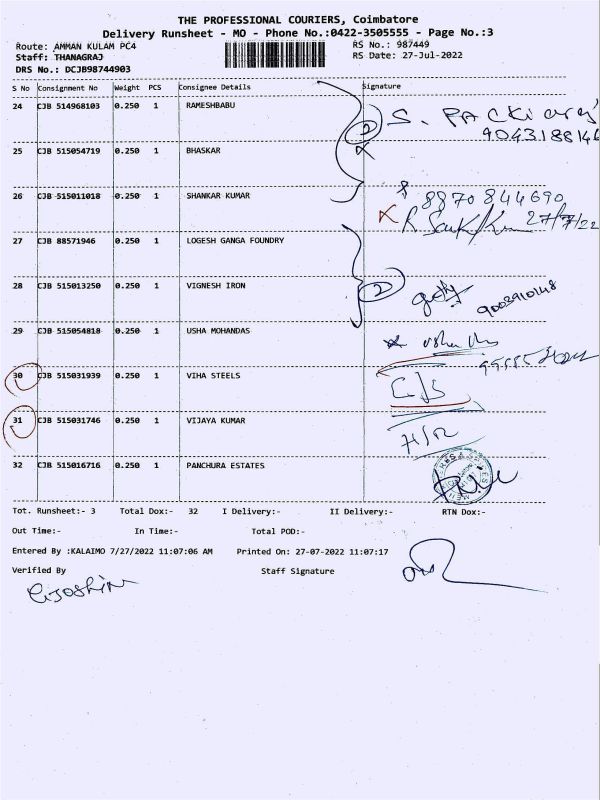 THE PROFESSIONAL COURIERS, Coimbatore
Delivery Runsheet - MO - Phone No.:0422-3505555 - Page No.:3
Route: AMMAN KULAM PC4 RS No.: 987449
Staff: THANAGRAJ RS Date: 27-Jul-2022
DRS No.: DCJB98744903
S No Consignment No Weight PCS Consignee Details Signature
24 CJB 514968103 0.250 1 RAMESHBABU S. PACKiaraj
9043188146
25 CJB 515054719 0.250 1 BHASKAR
26 CJB 515011018 0.250 1 SHANKAR KUMAR 8870844690
27/7/22
27 CJB 88571946 0.250 1 LOGESH GANGA FOUNDRY
28 CJB 515013250 0.250 1 VIGNESH IRON 2 9003910148
29 CJB 515054818 0.250 1 USHA MOHANDAS
30 CJB 515031939 0.250 1 VIHA STEELS
31 CJB 515031746 0.250 1 VIJAYA KUMAR
32 CJB 515016716 0.250 1 PANCHURA ESTATES
Tot. Runsheet:- 3 Total Dox:- 32 I Delivery:- II Delivery:- RTN Dox:-
Out Time:- In Time:- Total POD:-
Entered By :KALAIMO 7/27/2022 11:07:06 AM Printed On: 27-07-2022 11:07:17
Verified By Staff Signature